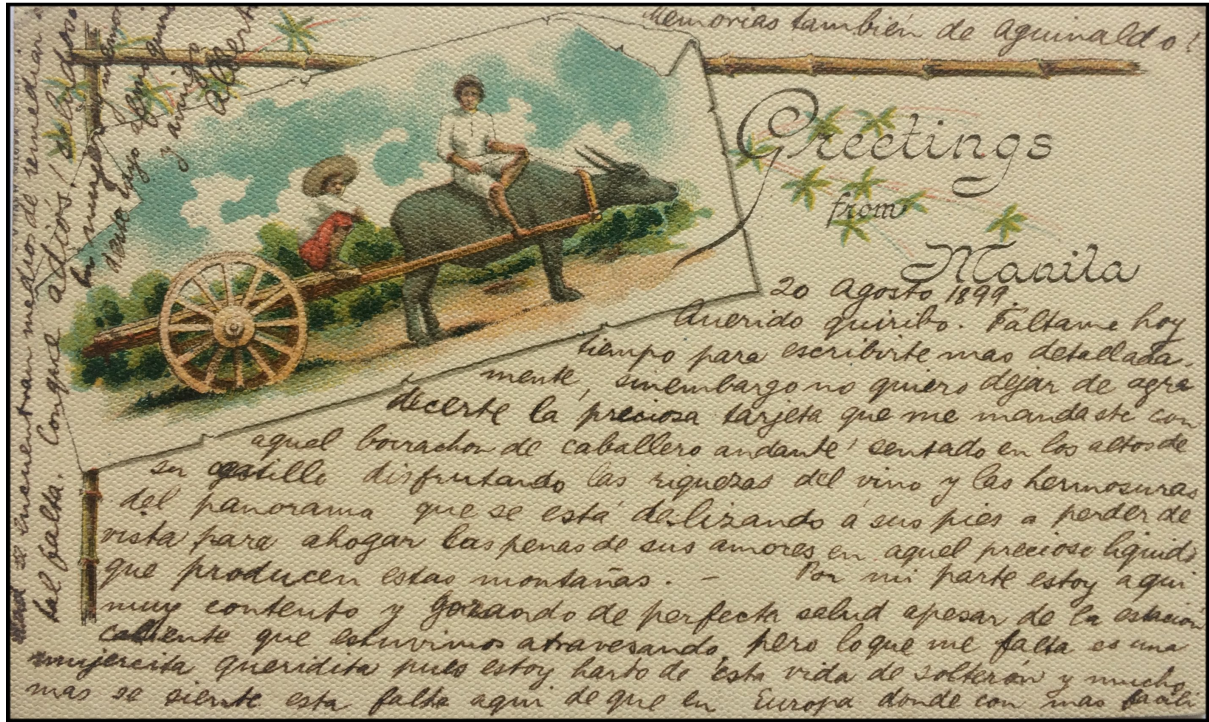 Memorias también de Aguinaldo!
Greetings
from
Manila
20 Agosto 1899.
Querido quiribo. Faltame hoy
tiempo para escribirte mas detallada-
mente, sinembargo no quiero dejar de agra
decerte la preciosa tarjeta que me mandaste con
aquel borrachon de caballero andante sentado en los altos de
su castillo disfrutando las riquezas del vino y las hermosuras
del panorama que se está deslizando á sus pies a perder de
vista para ahogar las penas de sus amores en aquel precioso liquido
que producen estas montañas. — Por mi parte estoy aqui
muy contento y gozando de perfecta salud apesar de la estación
caliente que estuvimos atravesando, pero lo que me falta es una
mujercita queridita pues estoy harto de esta vida de solterón y mucho
mas se siente esta falta aqui de que en Europa donde con mas facili
dad se encuentran medios de remediar
tal falta. Conque adios! Saludos
tu mujer y
siente tuyo afmo primo
y amigo
Alberto